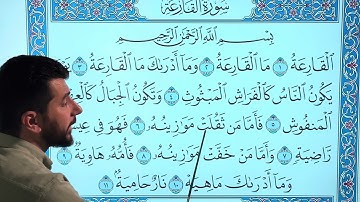 سُورَةُ الْقَارِعَةِ
بِسْمِ اللَّهِ الرَّحْمَٰنِ الرَّحِيمِ
الْقَارِعَةُ ١ مَا الْقَارِعَةُ ٢ وَمَا أَدْرَاكَ مَا الْقَارِعَةُ ٣
يَكُونُ النَّاسُ كَالْفَرَاشِ الْمَبْثُوثِ ٤ وَتَكُونُ الْجِبَالُ
الْمَنْفُوشِ ٥ فَأَمَّا مَنْ ثَقُلَتْ مَوَازِينُهُ ٦ فَهُوَ فِي
رَاضِيَةٍ ٧ وَأَمَّا مَنْ خَفَّتْ مَوَازِينُهُ ٨ فَأُمُّهُ هَاوِيَةٌ ٩
وَمَا أَدْرَاكَ مَا هِيَهْ ١٠ نَارٌ حَامِيَةٌ ١١